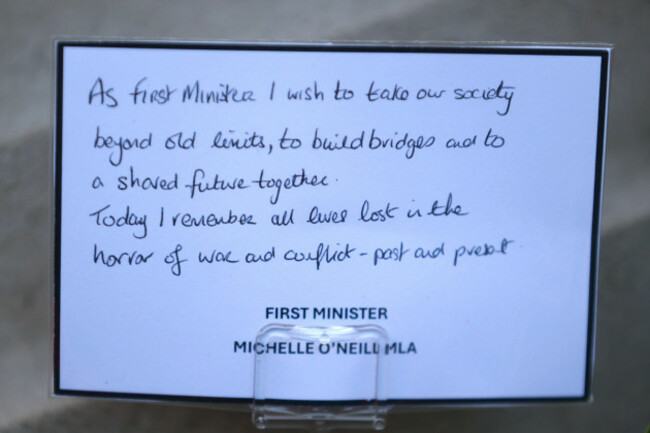 As first Minister I wish to take our society
beyond old limits, to build bridges and to
a shared future together.
Today I remember all lives lost in the
horror of war and conflict - past and present.
FIRST MINISTER
MICHELLE O'NEILL MLA